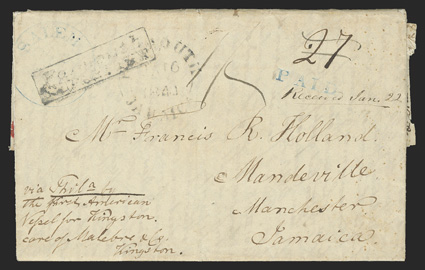 27
PAID
Received Jan. 22
Mr. Francis R. Holland.
Mandeville.
Manchester
Jamaica.
via Phila by
the first American
Vessel for Kingston.
care of Malabre & Co.
Kingston.